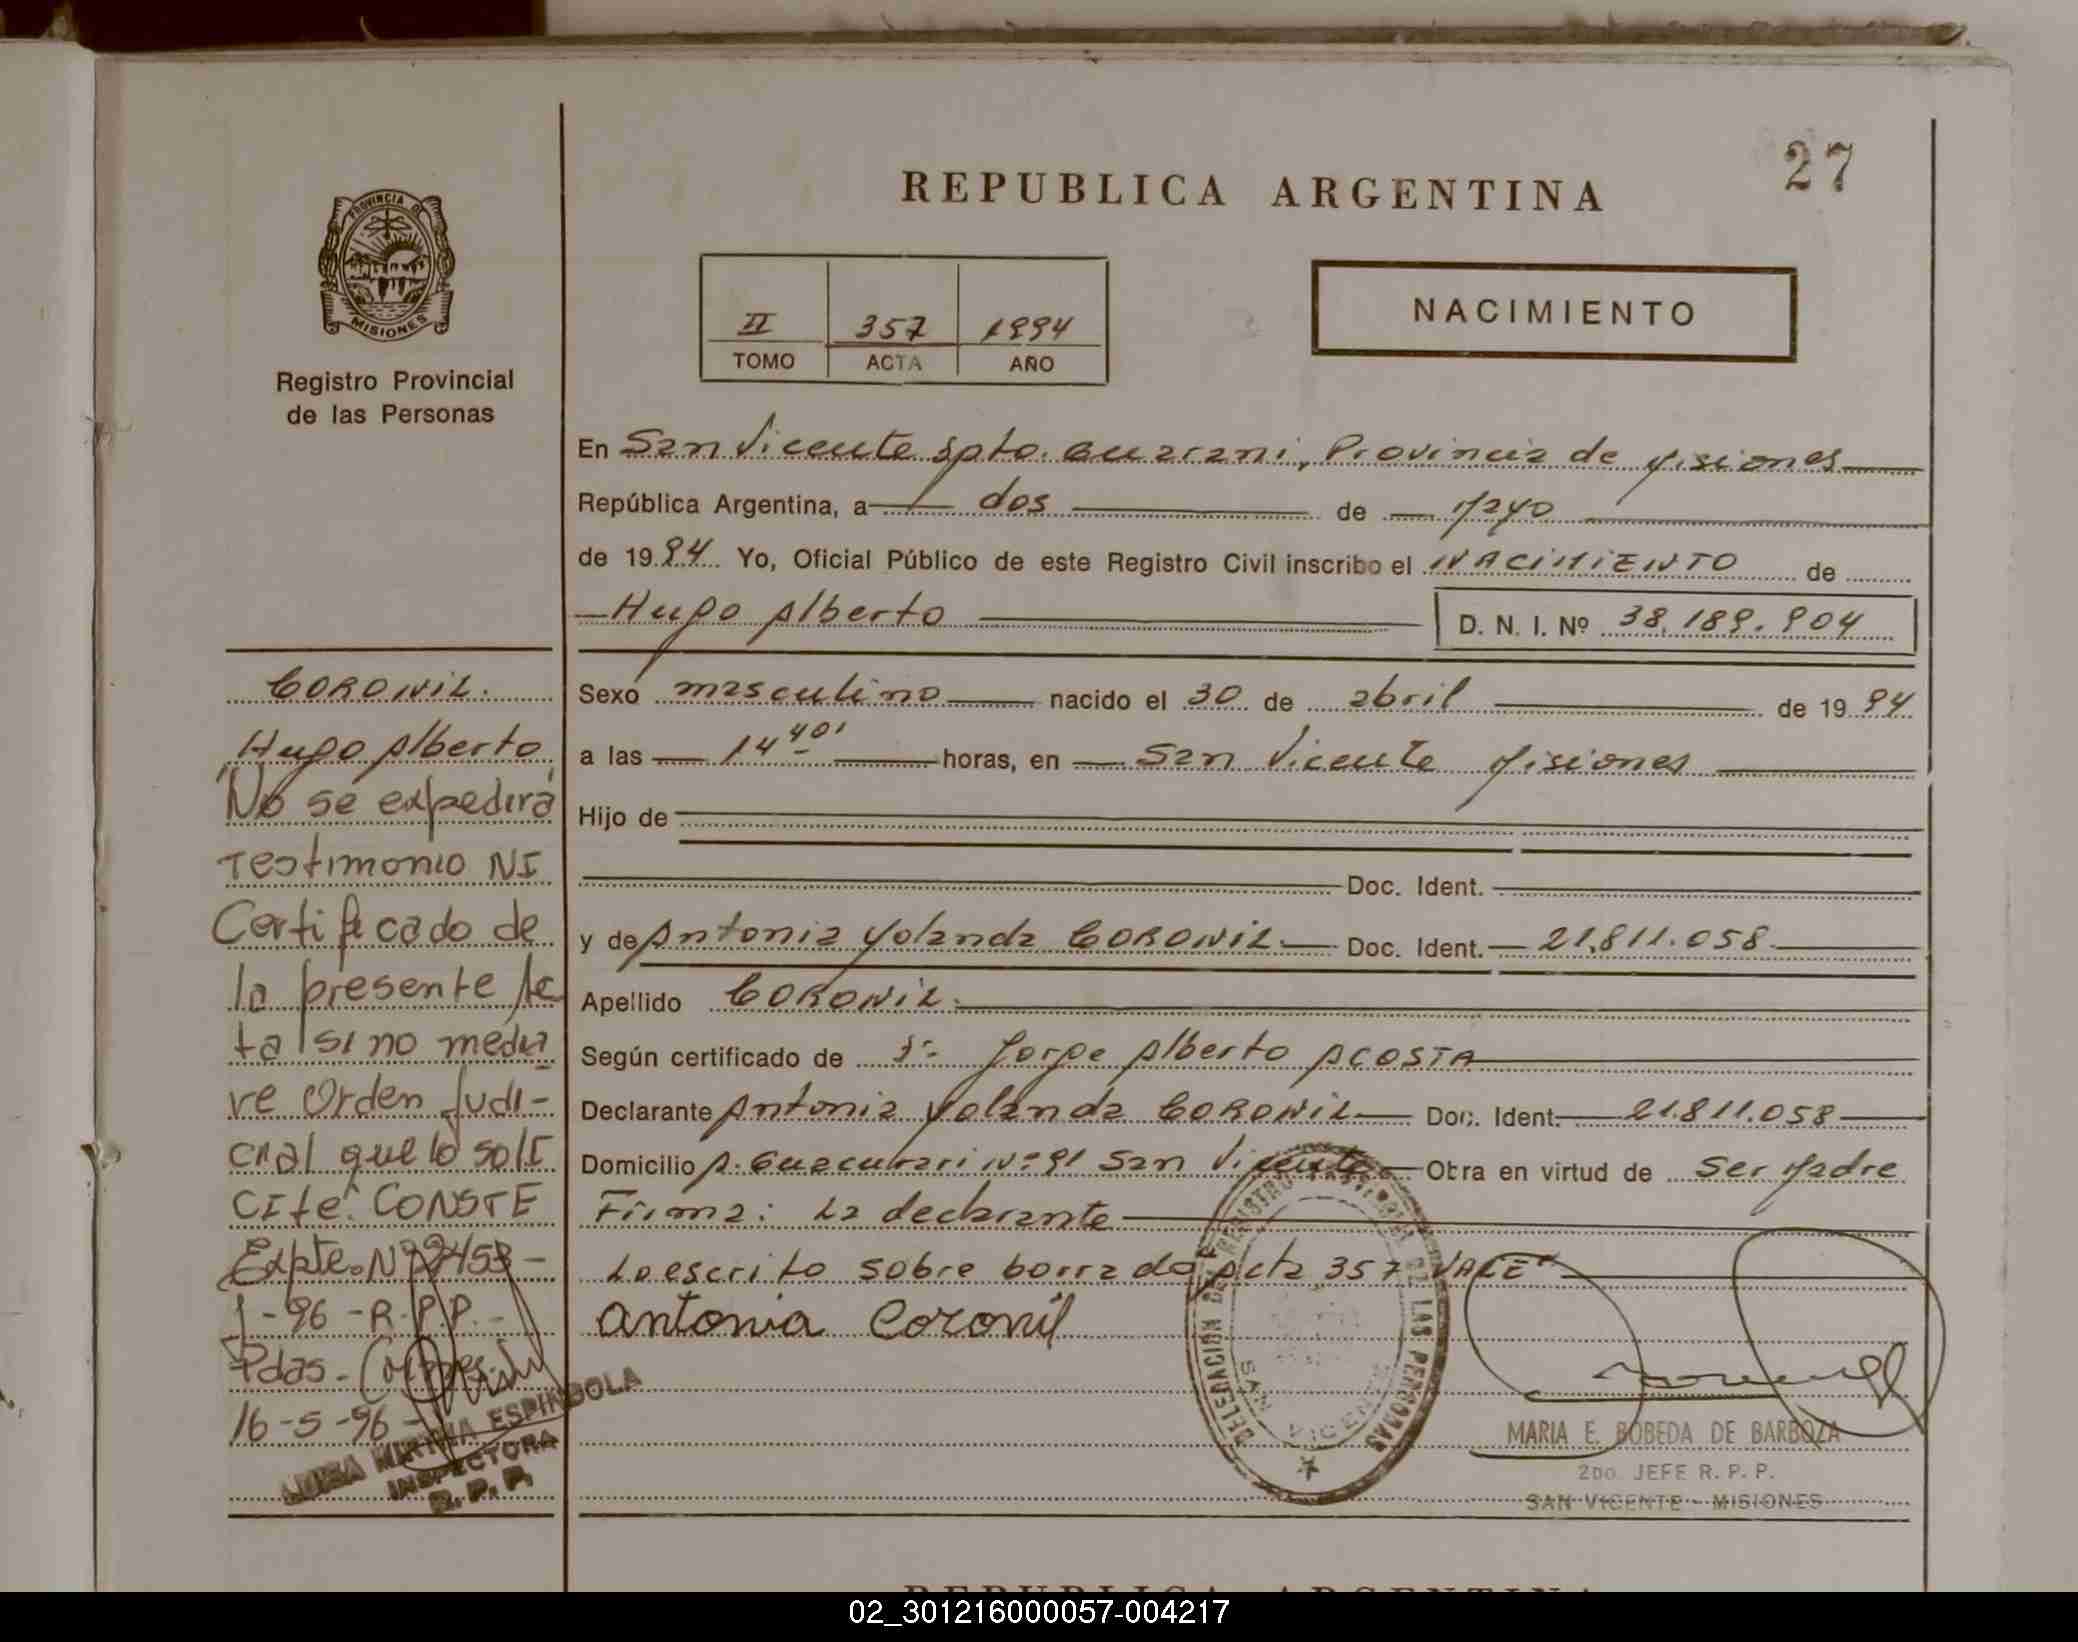 27
REPUBLICA ARGENTINA
PROVINCIA DE
MISIONES
Registro Provincial
de las Personas
II 357 1994
TOMO ACTA AÑO
NACIMIENTO
En San Vicente Dpto. Guarani, Provincia de Misiones
República Argentina, a dos de Mayo
de 1994 Yo, Oficial Público de este Registro Civil inscribo el NACIMIENTO de
Hugo Alberto
D. N. I. Nº 38.189.904
Sexo masculino nacido el 30 de abril de 1994
a las 14 40' horas, en San Vicente Misiones
Hijo de
Doc. Ident.
y de Antonia Yolanda CORONIL Doc. Ident. 21.811.058
Apellido CORONIL
Según certificado de Dr Jorge Alberto ACOSTA
Declarante Antonia Yolanda CORONIL Doc. Ident. 21.811.058
Domicilio A. Guacurari Nº 91 San Vicente Obra en virtud de ser Madre
Firma: La declarante
Lo escrito sobre borrado Acta 357 VALE"
Antonia Coronil
CORONIL.
Hugo Alberto
"No se expedirá
Testimonio NI
Certificado de
la presente Ac
ta si no media
re Orden Judi-
cial que lo soli
cite". CONSTE
Expte. Nº 2453-
J-96-R.P.P.-
Pdas.-
16-5-96-
LUISA MIRTHA ESPINDOLA
INSPECTORA
R. P. P.
DELEGACION DEL REGISTRO PROVINCIAL DE LAS PERSONAS
SAN VICENTE
MARIA E. BOBEDA DE BARBOZA
2DO. JEFE R. P. P.
SAN VICENTE - MISIONES
REPUBLICA ARGENTINA
02_301216000057-004217